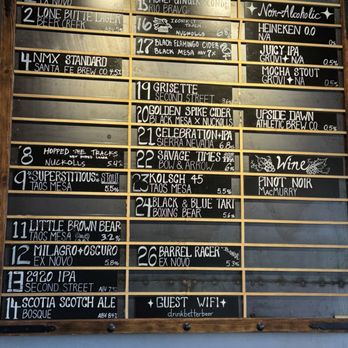 2 LONE BUTTE LAGER
BEER CREEK
4 NMX STANDARD
SANTA FE BREW CO
8 HOPPED THE TRACKS
NUCKOLLS 5.4%
9 "SUPERSTITIOUS" STOUT
TAOS MESA 5.5%
11 LITTLE BROWN BEAR
TAOS MESA 3.2%
12 MILAGRO + OSCURO
EX NOVO 5.8%
13 2920 IPA
SECOND STREET
14 SCOTIA SCOTCH ALE
BOSQUE
16
NUCKOLLS
17 BLACK FLAMINGO CIDER
BLACK MESA
19 GRISETTE
SECOND STREET
20 GOLDEN SPIKE CIDER
BLACK MESA X NUCKOLLS
21 CELEBRATION IPA
SIERRA NEVADA 6.8
22 SAVAGE TIMES IPA
BOW & ARROW
23 KOLSCH 45
TAOS MESA 5.5%
24 BLACK & BLUE TART
BOXING BEAR
26 BARREL RACER
EX NOVO 5.3%
+ GUEST WIFI +
drinkbetterbeer
Non-Alcoholic
HEINEKEN 0.0
N/A
JUICY IPA
GRUVI N/A
MOCHA STOUT
GRUVI N/A
UPSIDE DAWN
ATHLETIC BREW CO.
Wine
PINOT NOIR
MACMURRY